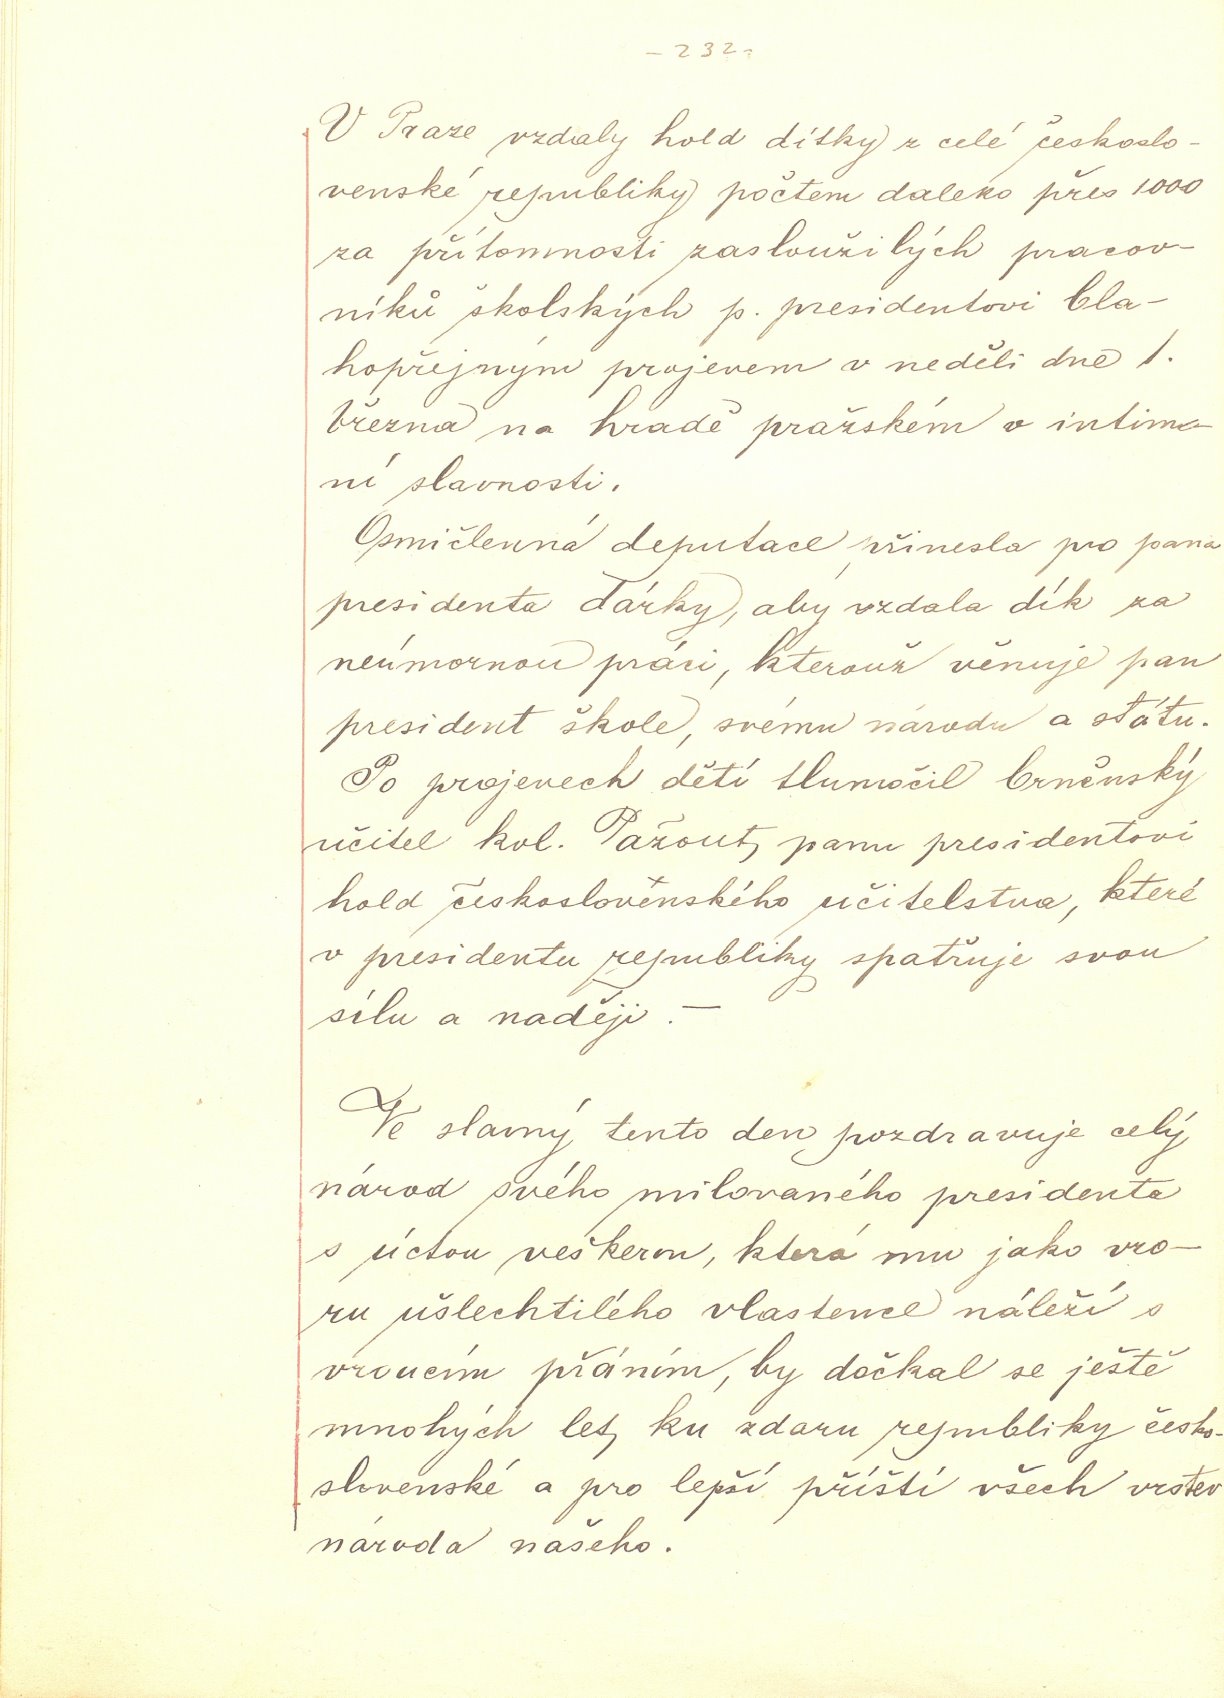 - 232 -
V Praze vzdaly hold dítky z celé českoslo-
venské republiky počtem daleko přes 1000
za přítomnosti zasloužilých pracov-
níků školských p. presidentovi bla-
hopřejným projevem v neděli dne 1.
března na hradě pražském v intim-
ní slavnosti.
Osmičlenná deputace přinesla pro pana
presidenta dárky, aby vzdala dík za
neúmornou práci, kterouž věnuje pan
president škole, svému národu a státu.
Po projevech dětí tlumočil brněnský
učitel kol. Pažout, panu presidentovi
hold československého učitelstva, které
v presidentu republiky spatřuje svou
sílu a naději. —
Ve slavný tento den pozdravuje celý
národ svého milovaného presidenta
s úctou veškerou, která mu jako vzo-
ru ušlechtilého vlastence náleží s
vroucím přáním, by dočkal se ještě
mnohých let, ku zdaru republiky česko-
slovenské a pro lepší příští všech vrstev
národa našeho.